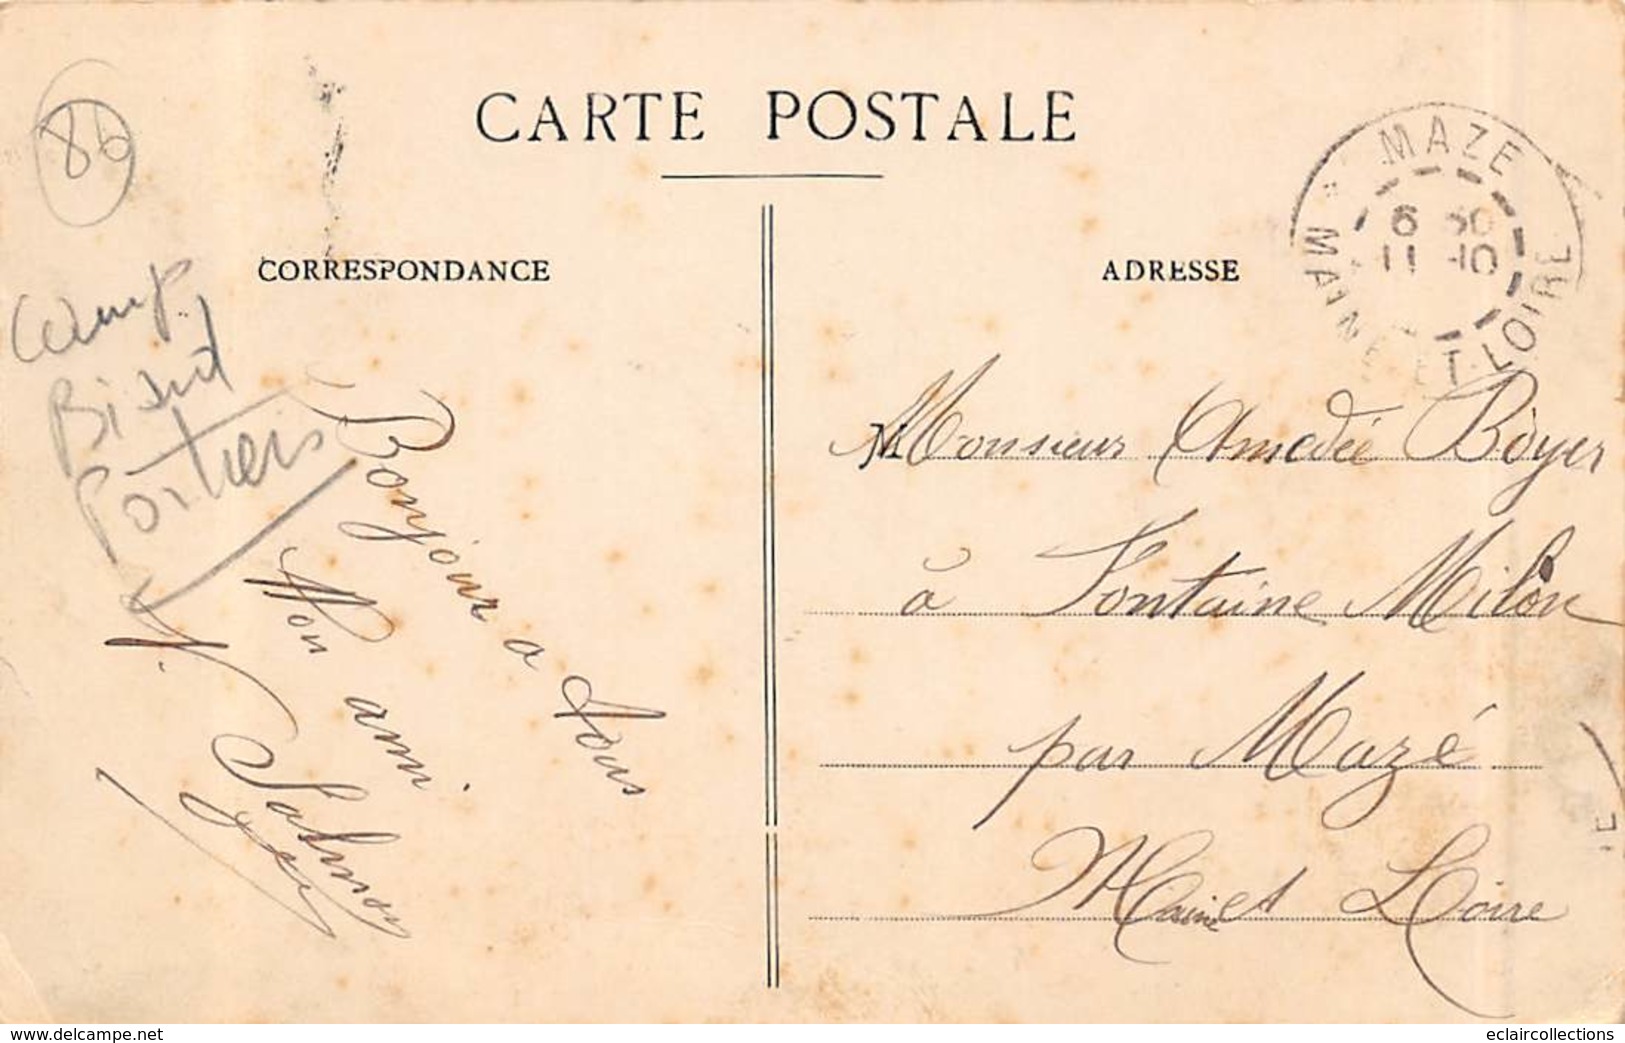 CARTE POSTALE
86
MAZE
6 30
11 -10
MAINE-ET-LOIRE
CORRESPONDANCE
ADRESSE
Camp
Poitiers
Bonjour a tous
Mon ami
Salmon
Monsieur Amedée Boyer
à Fontaine Milon
par Mazé
Maine et Loire
www.delcampe.net
eclaircollections